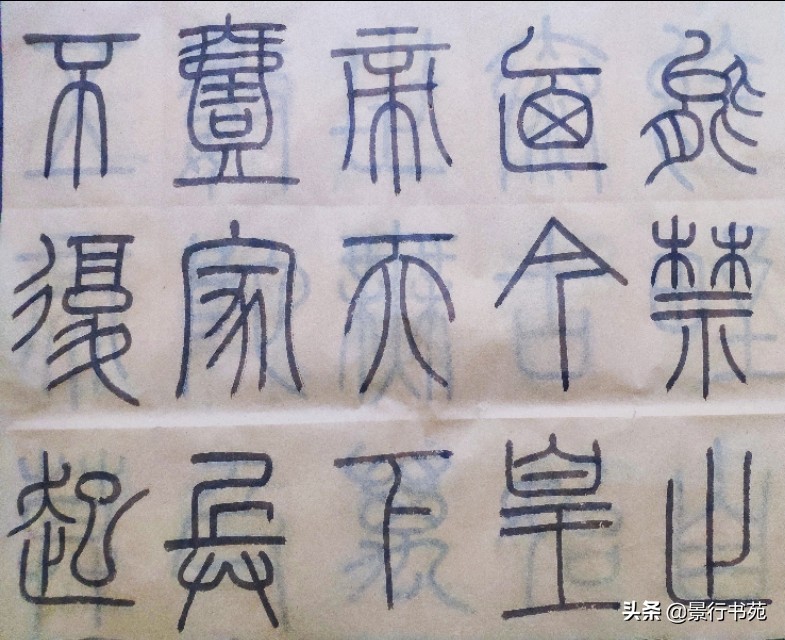 能禁止
廼今皇
帝天下
壹家兵
不復起
头条 @景行书苑